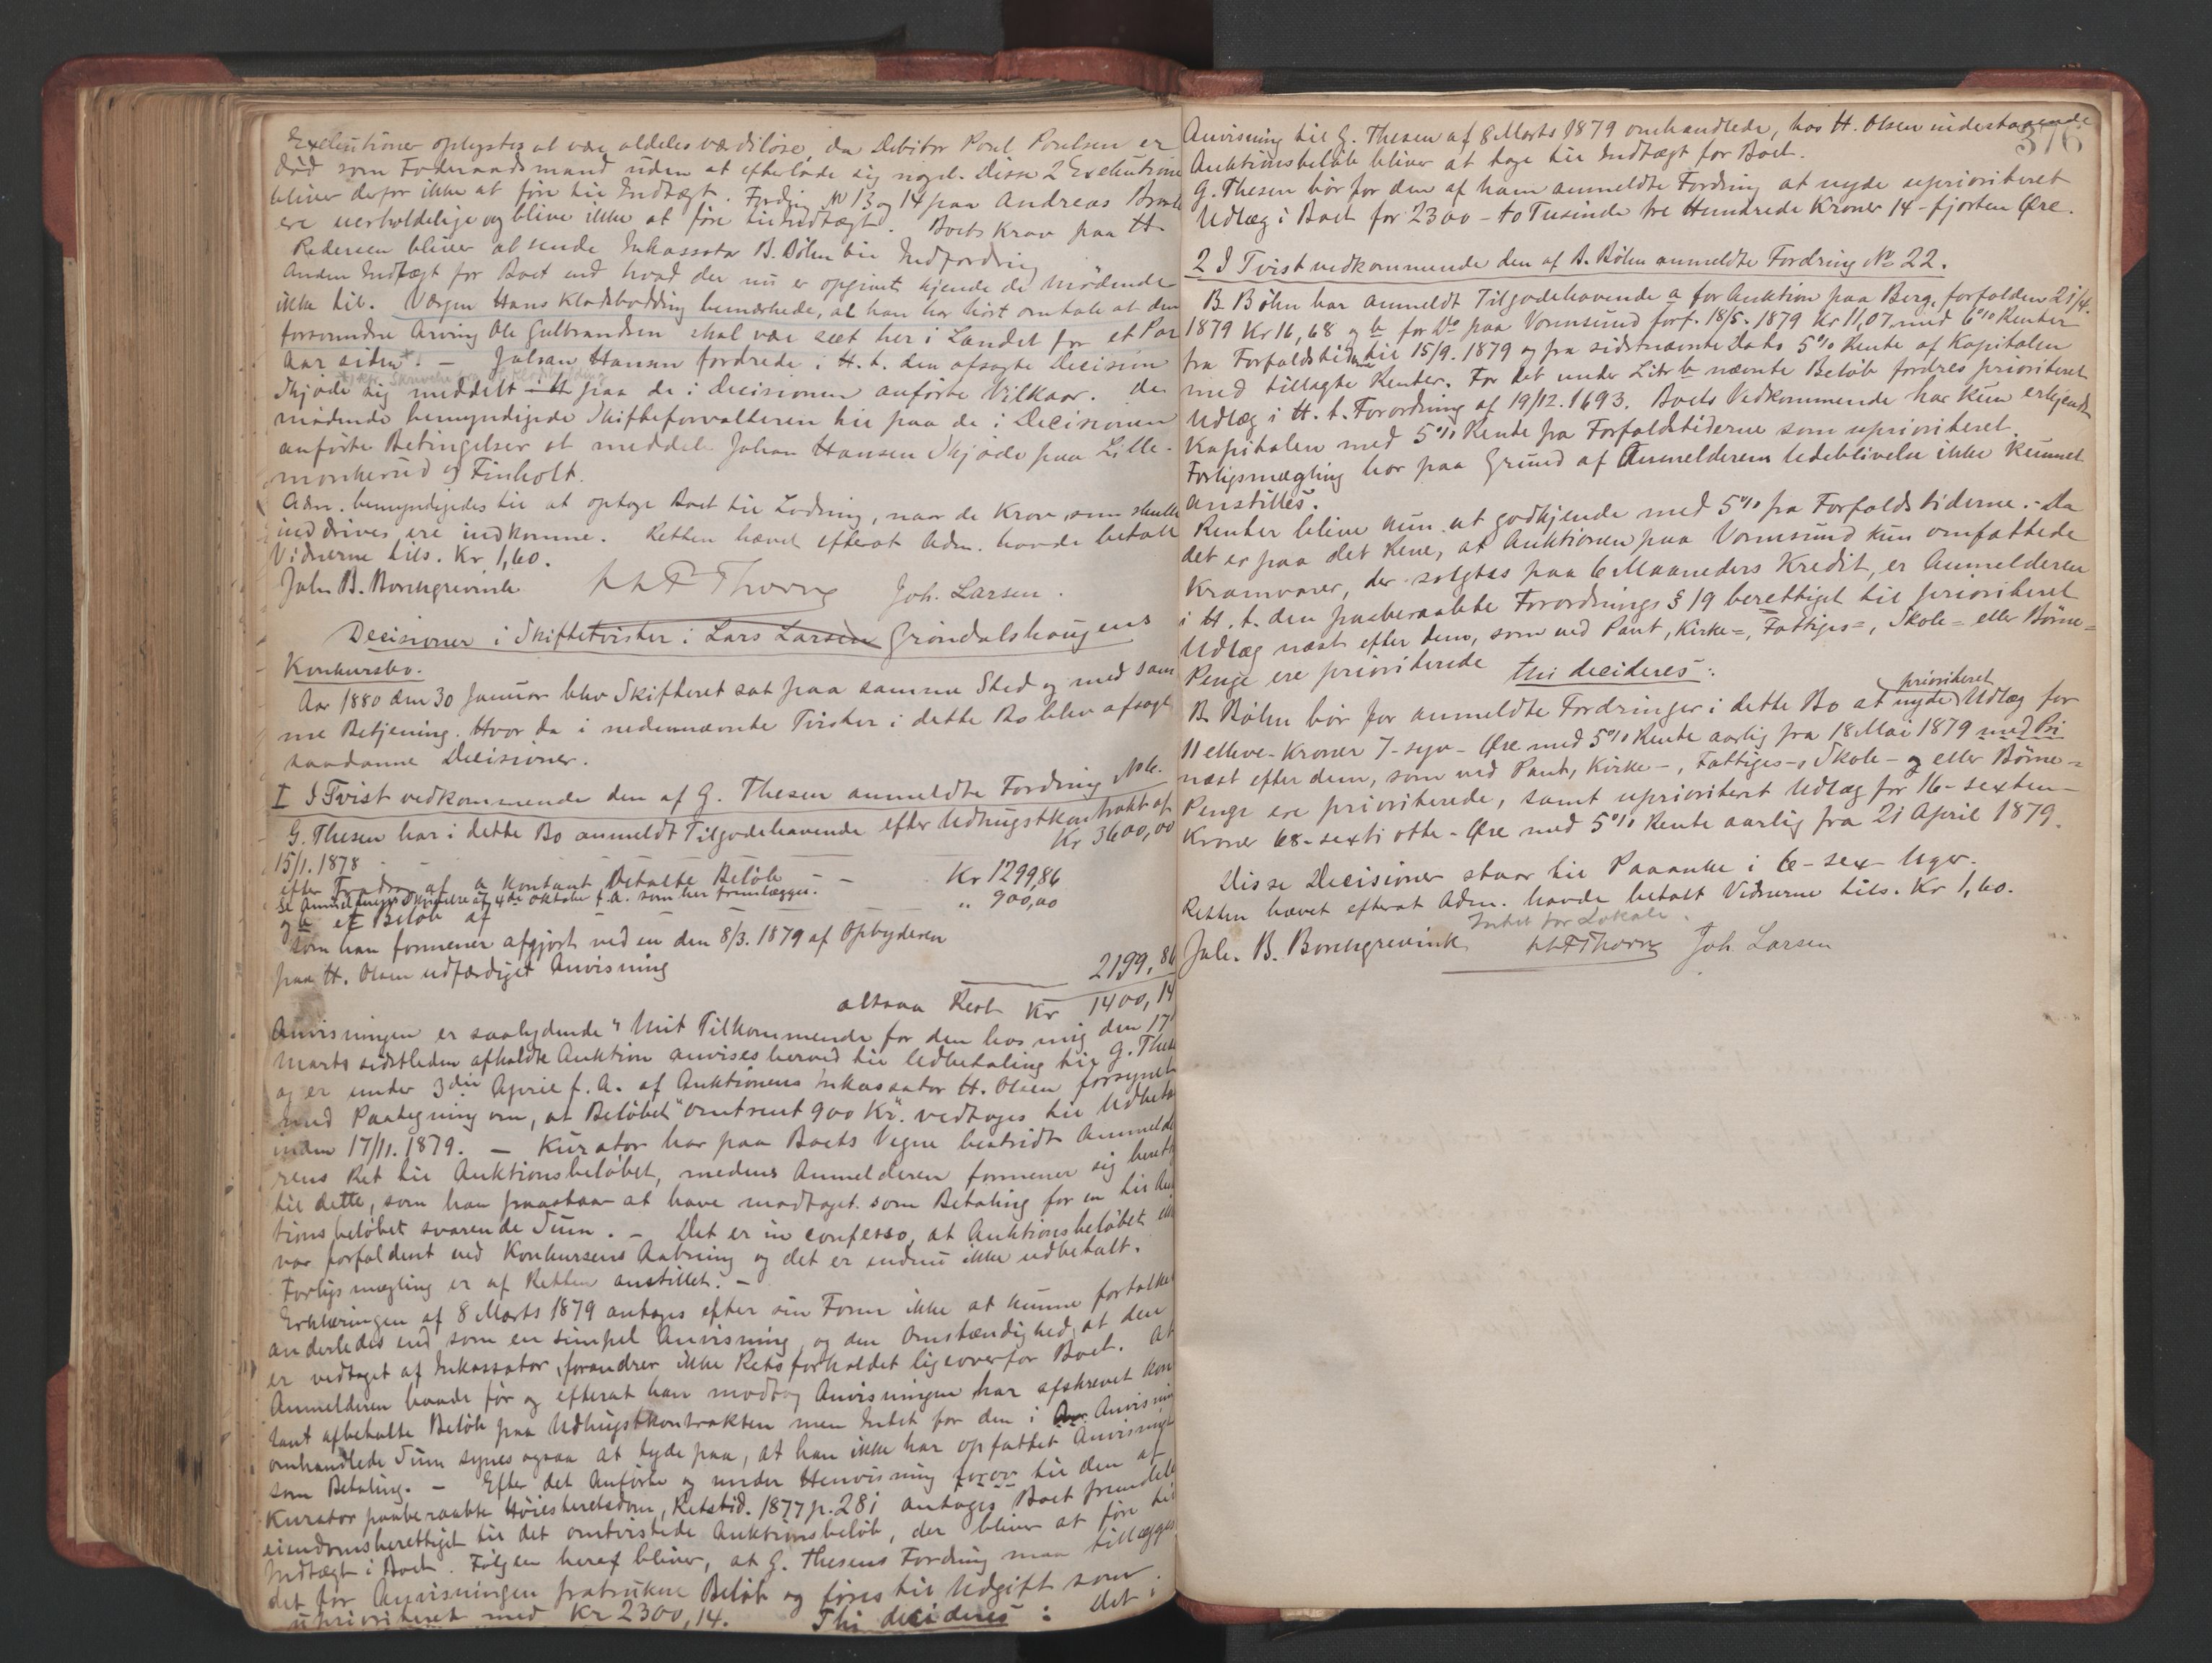 Exekutioner oplystes at være aldeles værdiløse, da Debitor Poul Poulsen er
død som Foderaadsmand uden at efterlade sig noget. Disse 2 Exekutioner
bliver derfor ikke at føre til Indtægt. Fordring No 13 og 14 paa Andreas
ere uerholdelige og blive ikke at føre til Indtægt. Boets Krav paa H.
Pedersen bliver at sende Inkassator B. Bøhn til Indfordring
Anden Indtægt for Boet end hvad der nu er opgivet kjende de mødende
ikke til. Værgen Hans Kladsbødding bemærkede, at han har hørt omtale at den
forsvundne Arving Ole Gulbrandsen skal være seet her i Landet for et Par
Aar siden*. — Johan Hansen fordrede i H. t. den afsagte Decision
Skjøde sig meddelt paa de i Decisionen anførte Vilkaar. De
mødende bemyndigede Skifteforvalteren til paa de i Decisionen
anførte Betingelser at meddele Johan Hansen Skjøde paa Lille-
morkerud og Finholt.
Adm. bemyndigedes til at optage Boet til Lodning, naar de Krav, som skulle
inddrives, ere indkomne. Retten hævet efterat Adm. havde betalt
Vidnerne tils. Kr 1,60.
Joh. B. Borchgrevink Thorne Joh. Larsen.
Decisioner i Skiftetvister i Lars Larsen Grøndalshaugens
Konkursbo.
Aar 1880 den 30 Januar blev Skifteret sat paa samme Sted og med sam
me Betjening. Hvor da i nedennævnte Tvister i dette Bo blev afsagt
saadanne Decisioner.
I I Tvist vedkommende den af G. Thesen anmeldte Fordring No 6.
G. Thesen har i dette Bo anmeldt Tilgodehavende efter Udhugstkontrakt af
15/1. 1878 Kr 3600,00
efter Fradrag af a kontant betalte Beløb — — Kr 1299,86
se Anmeldelses Skrivelse af 4de Oktober f. A. som her fremlægges.
og b et Beløb af „ 900,00
som han formener afgjort ved en den 8/3. 1879 af Opbyderen
paa H. Olsen udfærdiget Anvisning
2199,86
altsaa Rest Kr 1400,14
Anvisningen er saalydende "Mit Tilkommende for den hos mig den 17
Marts sidstleden afholdte Auktion anvises herved til Udbetaling til G. Thesen
og er under 3die April f. A. af Auktionens Inkassator H. Olsen forsynet
med Paategning om, at Beløbet "omtrent 900 Kr." vedtages til Udbeta
inden 17/11. 1879. — Kurator har paa Boets Vegne bestridt Anmelde
rens Ret til Auktionsbeløbet, medens Anmelderen formener sig berett
til dette, som han paastaar at have modtaget som Betaling for en til Auk
tionsbeløbet svarende Sum. — Det er in confesso, at Auktionsbeløbet ik
var forfaldent ved Konkursens Aabning og det er endnu ikke udbetalt.
Forligsmægling er af Retten anstillet. —
Erklæringen af 8 Marts 1879 antages efter sin Form ikke at kunne fortolkes
anderledes end som en simpel Anvisning, og den Omstændighed, at den
er vedtaget af Inkassator, forandrer ikke Retsforholdet ligeoverfor Boet. At
Anmelderen baade før og efterat han modtog Anvisningen har afskrevet kon
tant afbetalte Beløb paa Udhugstkontrakten men Intet for den i Anvisning
omhandlede Sum synes ogsaa at tyde paa, at han ikke har opfattet Anvisningen
som Betaling. — Efter det Anførte og under Henvisning forøv til den af
Kurator paaberaabte Høiesteretsdom, Retstid. 1877 p. 281 antages Boet fremdeles
eiendomsberettiget til det omtvistede Auktionsbeløb, der bliver at føre til
Indtægt i Boet. Følgen heraf bliver, at G. Thesens Fordring maa tillægges
det for Anvisningen fratrukne Beløb og føres til Udgift som
uprioriteret med Kr 2300,14. Thi decideres: Det i
376
Anvisning til G. Thesen af 8 Marts 1879 omhandlede, hos H. Olsen indestaaende
Auktionsbeløb bliver at tage til Indtægt for Boet.
G. Thesen bør for den af ham anmeldte Fordring at nyde uprioriteret
Udlæg i Boet for 2300 – to Tusinde tre Hundrede Kroner 14 – fjorten Øre.
2 I Tvist vedkommende den af B. Bøhn anmeldte Fordring No 22.
B. Bøhn har anmeldt Tilgodehavende a for Auktion paa Berg, forfalden 21/4.
1879 Kr 16,68 og b for Do paa Vormsund forf. 18/5. 1879 Kr 11,07 med 6% Renter
fra Forfaldstiderne til 15/9. 1879 og fra sidstnævnte Dato 5% Rente af Kapitalen
med tillagte Renter. For det under Litr b nævnte Beløb fordres prioriteret
Udlæg i H. t. Forordning af 19/12. 1693. Boets Vedkommende har kun erkjendt
Kapitalen med 5% Rente fra Forfaldstiderne som uprioriteret.
Forligsmægling har paa Grund af Anmelderens Udeblivelse ikke kunnet
anstilles.
Renter blive kun at godkjende med 5% fra Forfaldstiderne. – Da
det er paa det Rene, at Auktionen paa Vormsund kun omfattede
Kramvarer, der solgtes paa 6 Maaneders Kredit, er Anmelderen
i H. t. den paaberaabte Forordnings § 19 berettiget til prioriteret
Udlæg næst efter dem, som ved Pant, Kirke=, Fattiges=, Skole= eller Børne=
Penge ere prioriterede thi decideres:
B. Bøhn bør for anmeldte Fordringer i dette Bo at nyde prioriteret Udlæg for
11 elleve – Kroner 7 – syv – Øre med 5% Rente aarlig fra 18 Mai 1879 med Pri
næst efter dem, som ved Pant, Kirke –, Fattiges –, Skole – og eller Børne=
Penge ere prioriterede, samt uprioriteret Udlæg for 16 – sexten –
Kroner 68 – sexti otte – Øre med 5% Rente aarlig fra 21 April 1879.
Disse Decisioner staar til Paaanke i 6 – sex – Uger.
Retten hævet efterat Adm. havde betalt Vidnerne tils. Kr 1,60.
Intet for Lokale.
Joh. B. Borchgrevink Thorne Joh. Larsen